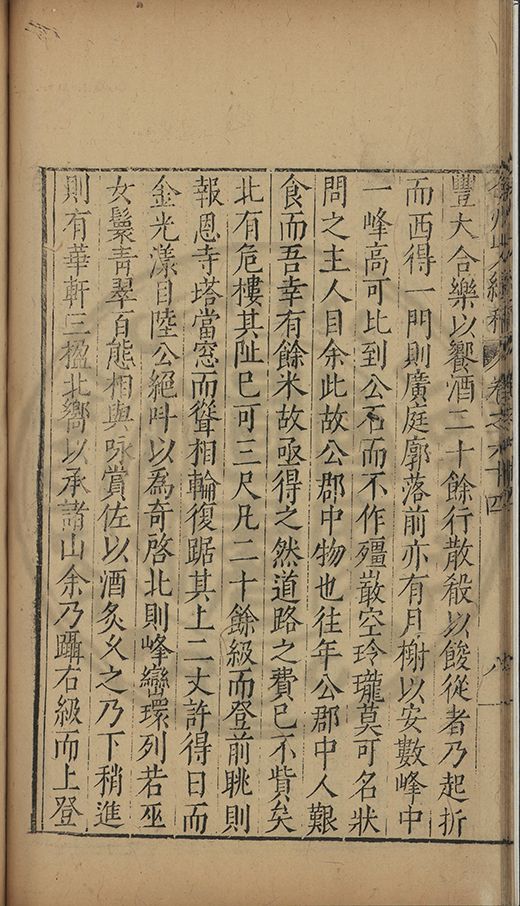 弇州山人續稿 卷之六十四 八
豐大合樂以饗酒二十餘行散殽以餕從者乃起折
而西得一門則廣庭廓落前亦有月榭以安數峰中
一峰高可比到公石而不作殭巖空玲瓏莫可名狀
問之主人目余此故公郡中物也往年公郡中人艱
食而吾幸有餘米故亟得之然道路之費已不貲矣
北有危樓其阯已可三尺凡二十餘級而登前眺則
報恩寺塔當窓而聳相輪復踞其上二丈許得日而
金光漾目陸公絕呌以爲奇啓北則峰巒環列若巫
女鬟靑翠百態相與咏賞佐以酒炙乆之乃下稍進
則有華軒三楹北嚮以承諸山余乃躡右級而上登